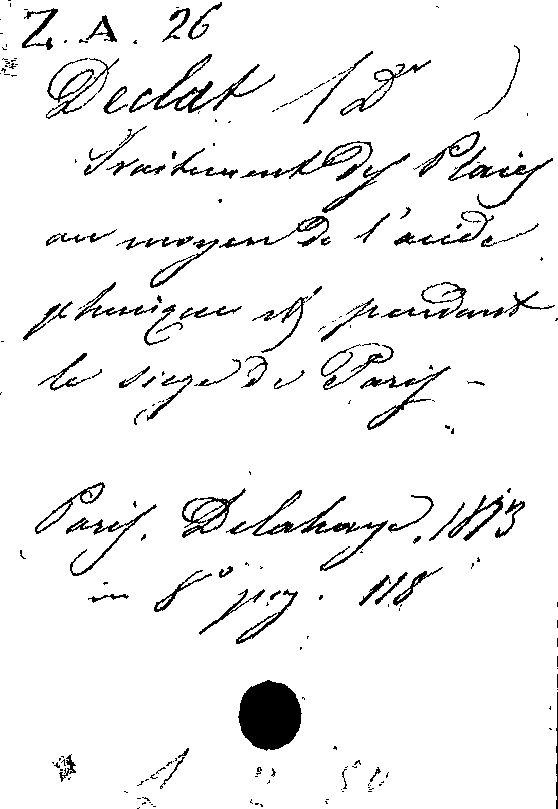 Z. A. 26
Declat (Dr)
Traitement des Plaies
au moyen de l'acide
phenique etc pendant
le siege de Paris -
Paris. Delahaye. 1873
in 8° pag. 118